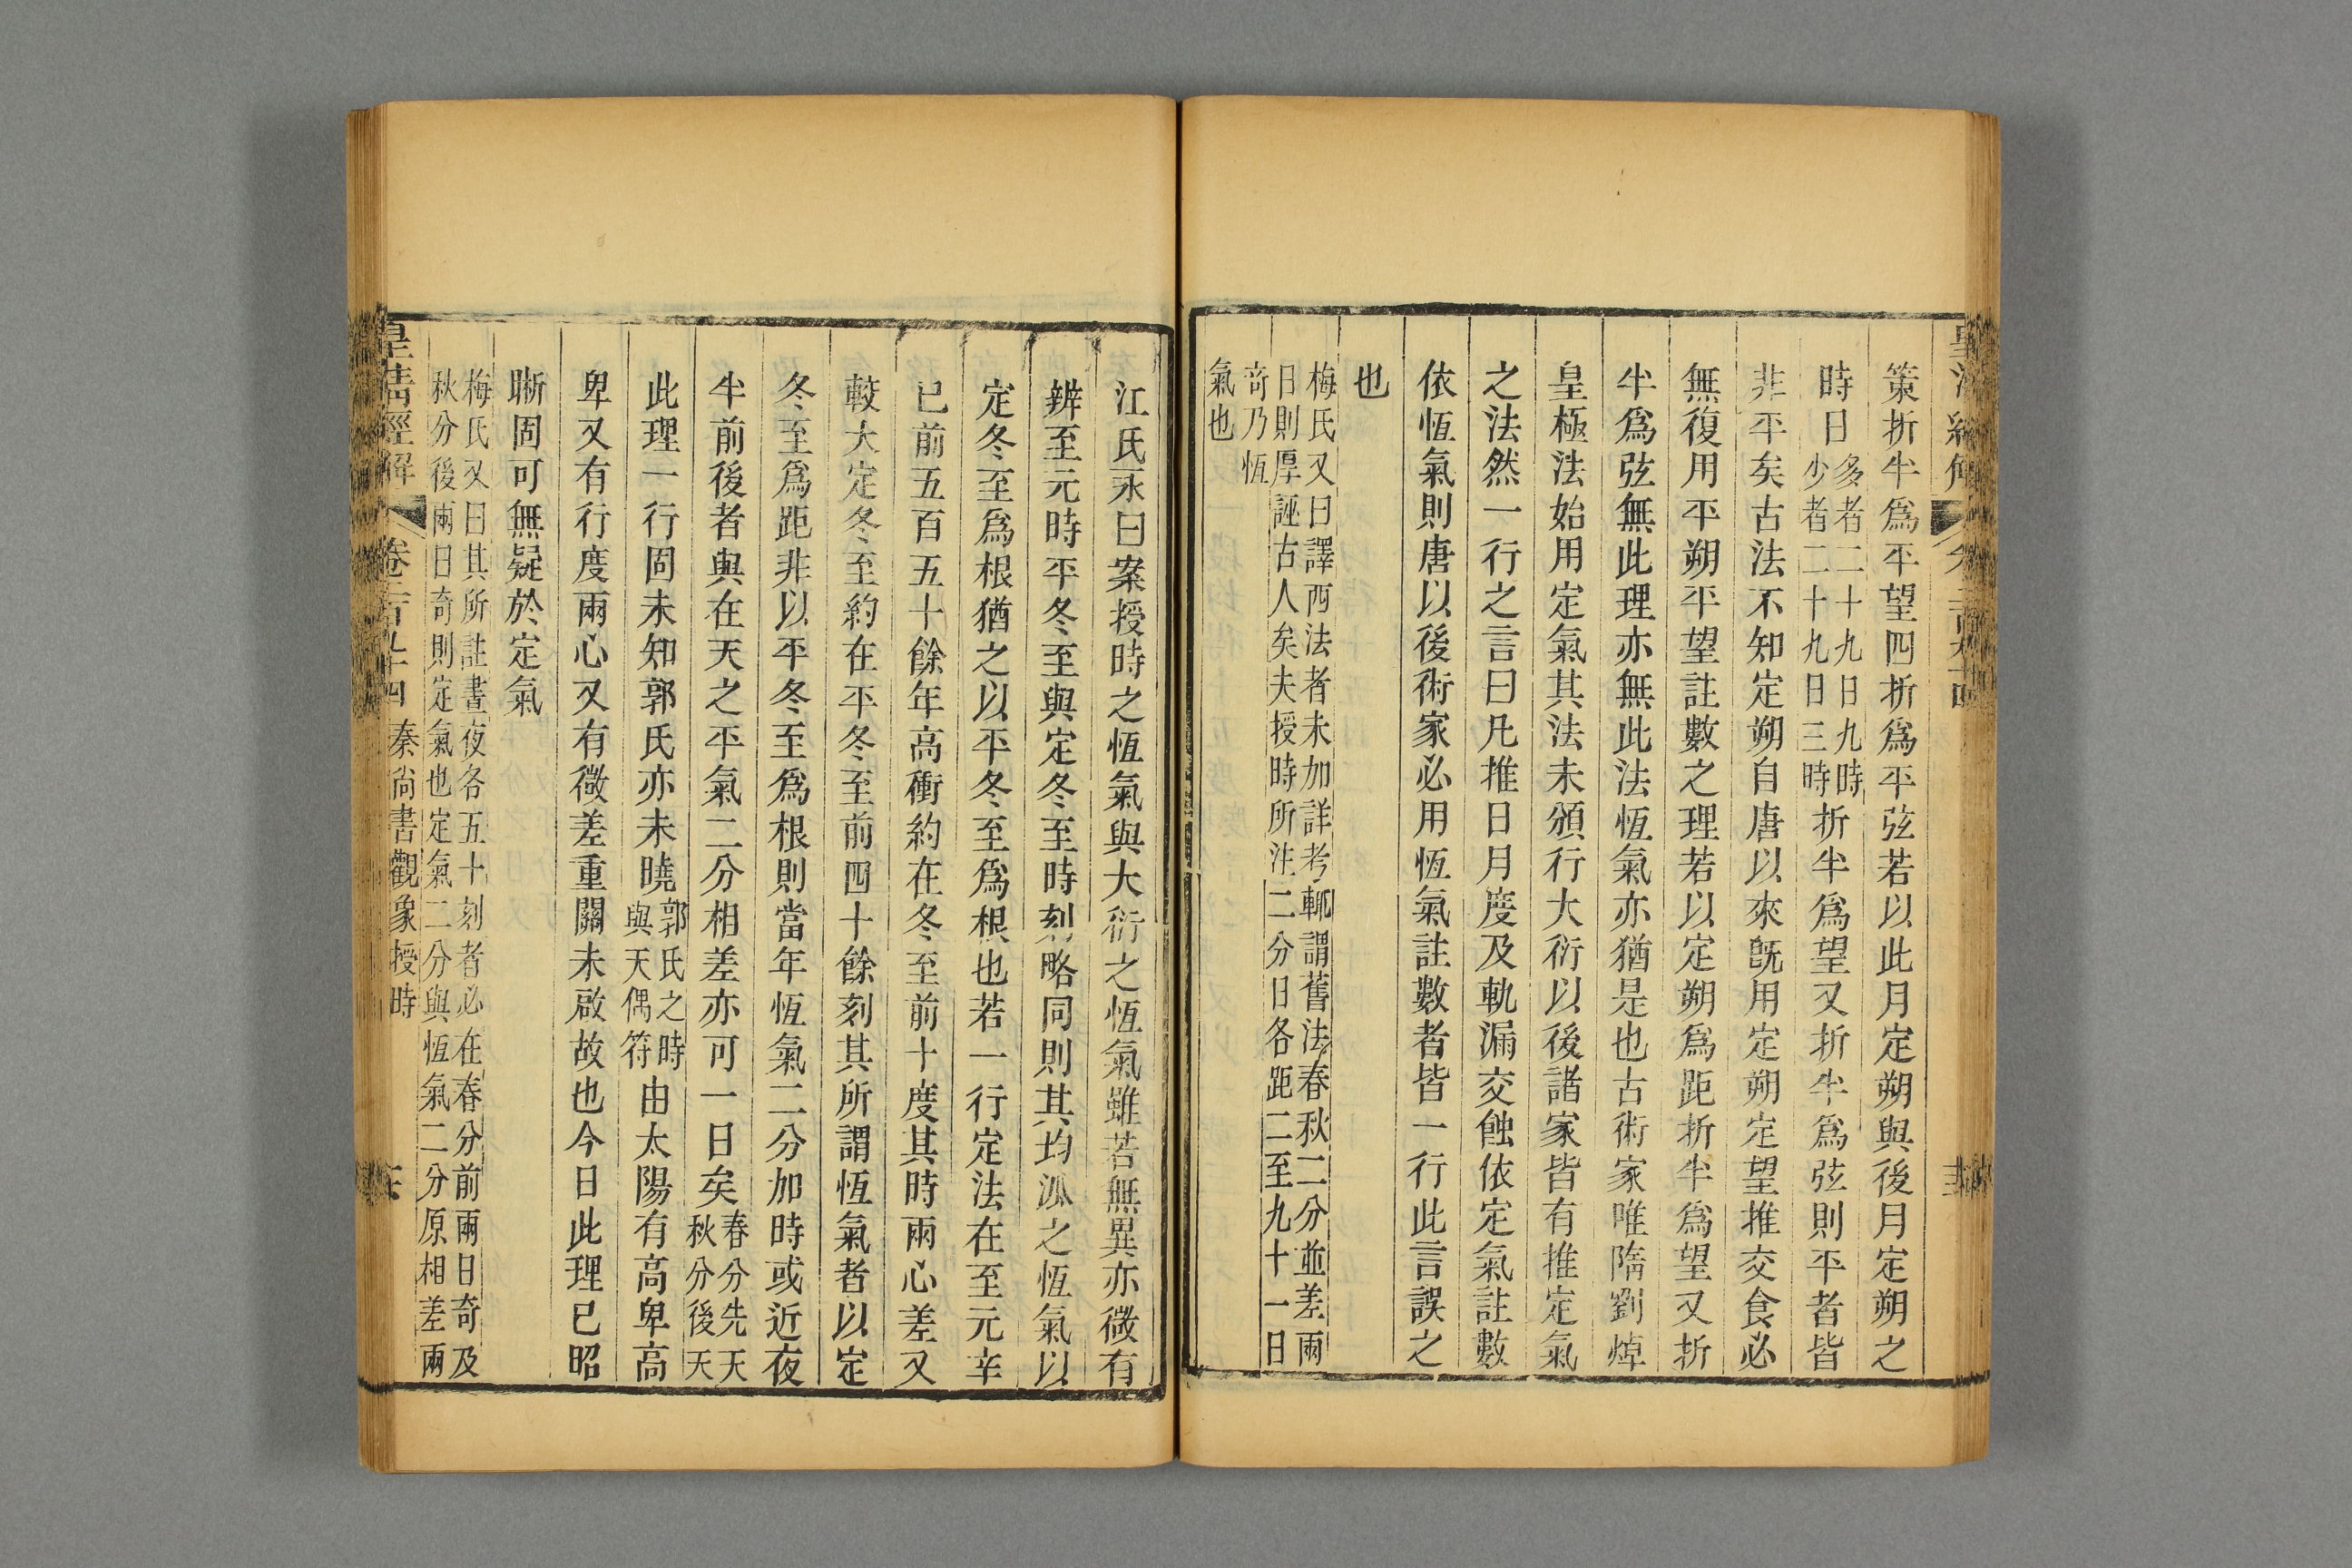 策折半爲平望四折爲平弦若以此月定朔與後月定朔之
時日多者二十九日九時少者二十九日三時折半爲望又折半爲弦則平者皆
非平矣古法不知定朔自唐以來旣用定朔定望推交食必
無復用平朔平望註數之理若以定朔爲距折半爲望又折
半爲弦無此理亦無此法恆氣亦猶是也古術家唯隋劉焯
皇極法始用定氣其法未頒行大衍以後諸家皆有推定氣
之法然一行之言曰凡推日月度及軌漏交蝕依定氣註數
依恆氣則唐以後術家必用恆氣註數者皆一行此言誤之
也
梅氏又曰譯西法者未加詳考輒謂舊法春秋二分並差兩
日則厚誣古人矣夫授時所注二分日各距二至九十一日
奇乃恆
氣也
江氏永曰案授時之恆氣與大衍之恆氣雖若無異亦微有
辨至元時平冬至與定冬至時刻略同則其均派之恆氣以
定冬至爲根猶之以平冬至爲根也若一行定法在至元辛
巳前五百五十餘年高衝約在冬至前十度其時兩心差又
較大定冬至約在平冬至前四十餘刻其所謂恆氣者以定
冬至爲距非以平冬至爲根則當年恆氣二分加時或近夜
半前後者與在天之平氣二分相差亦可一日矣春分先天秋分後天
此理一行固未知郭氏亦未曉郭氏之時與天偶符由太陽有高卑高
卑又有行度兩心又有微差重關未啟故也今日此理已昭
晣固可無疑於定氣
梅氏又曰其所註晝夜各五十刻者必在春分前兩日奇及
秋分後兩日奇則定氣也定氣二分與恆氣二分原相差兩
皇清經解 卷二百九十四 秦尚書觀象授時